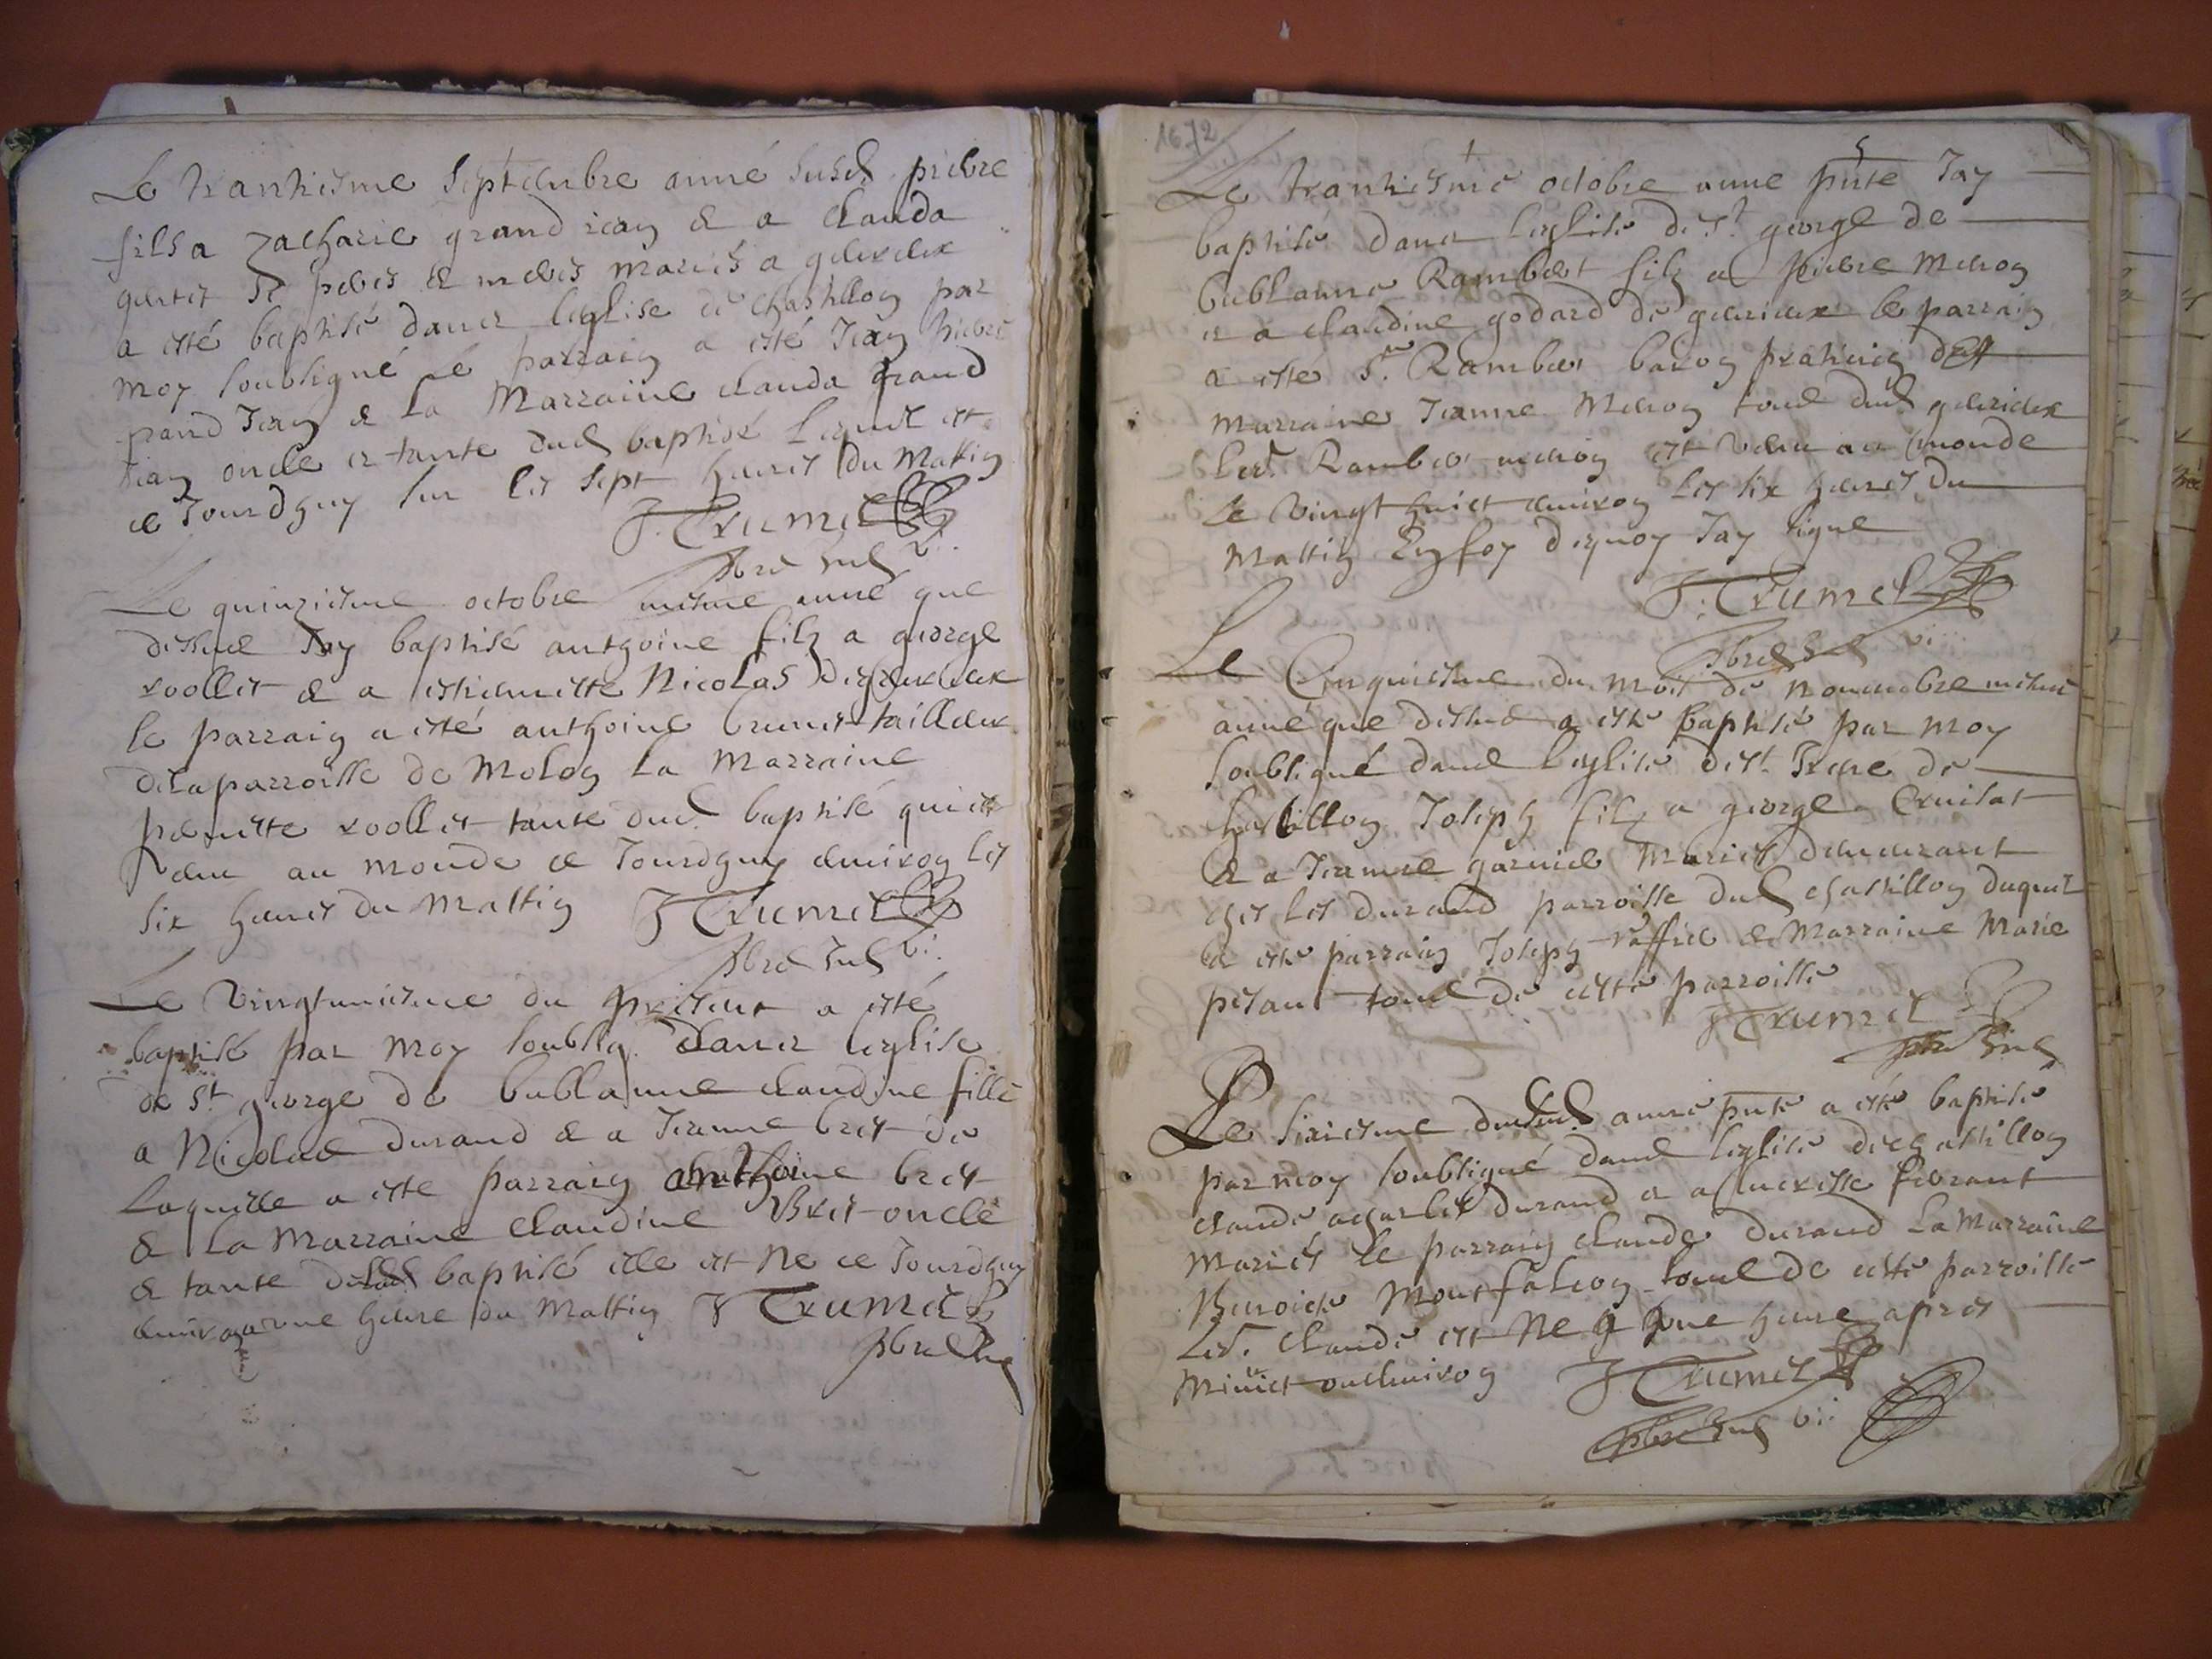 Le trantiesme septembre anné susd. pierre
fils a Zacharie grand jean & a Clauda
mariés a
a esté baptisé dans leglise de chastillon par
moy soubsigné le parrain a esté Jean pierre
grand Jean & la Marraine clauda grand
Jean oncle et tante dud baptisé lequel est
ce Jourdhuy sur les sept heures du Mattin
J. Trumel
pbre vic
Le quinziesme octobre mesme anné que
dessus Jay baptisé anthoine filz a george
roollet & a estiennette Nicolas
le parrain a esté anthoine brunet tailleur
de la parroisse de Molon la Marraine
pernette roollet tante dud. baptisé qui est
venu au monde ce Jourdhuy environ les
six heures du Mattin J Trumel
pbre vic
Le vingtuniesme du present a esté
baptisé par moy soubsig. dans leglise
de St george de bublanne claudine fille
a Nicolas durand & a Jeanne bret de
Laquelle a esté parrain anthoine bret
& la Marraine claudine Bret oncle
& tante baptisé elle est Ne ce Jourdhuy
environ une heure du Mattin J Trumel
pbre
1672
Le trantiesme octobre anne pnte Jay
baptisé dans leglise de St george de
bublanne Rambert filz a pierre Meron
et a claudine godard de le parrain
a esté Sr. Rambert baron praticien &
marraine Jeanne Meron tous dud
Led. Rambert meron est venu au monde
le vingt huict environ les six heures du
Mattin En foy dequoy Jay signe
J. Trumel
pbre vic
Le Cinquiesme du mois de novembre mesme
anné que dessus a esté baptisé par moy
soubsigné dans leglise de St. de
chastillon Joseph filz a george Cruisat
& a Jeanne garnier Mariés demeurant
ches les durand parroisse dud chastillon duquel
a esté parrain Joseph & Marraine Marie
pesant tous de ceste parroisse
J Trumel
pbre vic
Le sixiesme dususd. anné pnte a esté baptisé
par moy soubsigné dans leglise de chastillon
claude a charles durand & a
Mariés le parrain claude durand La Marraine
Benoiste Montfalcon tous de ceste parroisse
Led. claude est Ne une heure apres
Minuict ou environ J Trumel
pbre vic